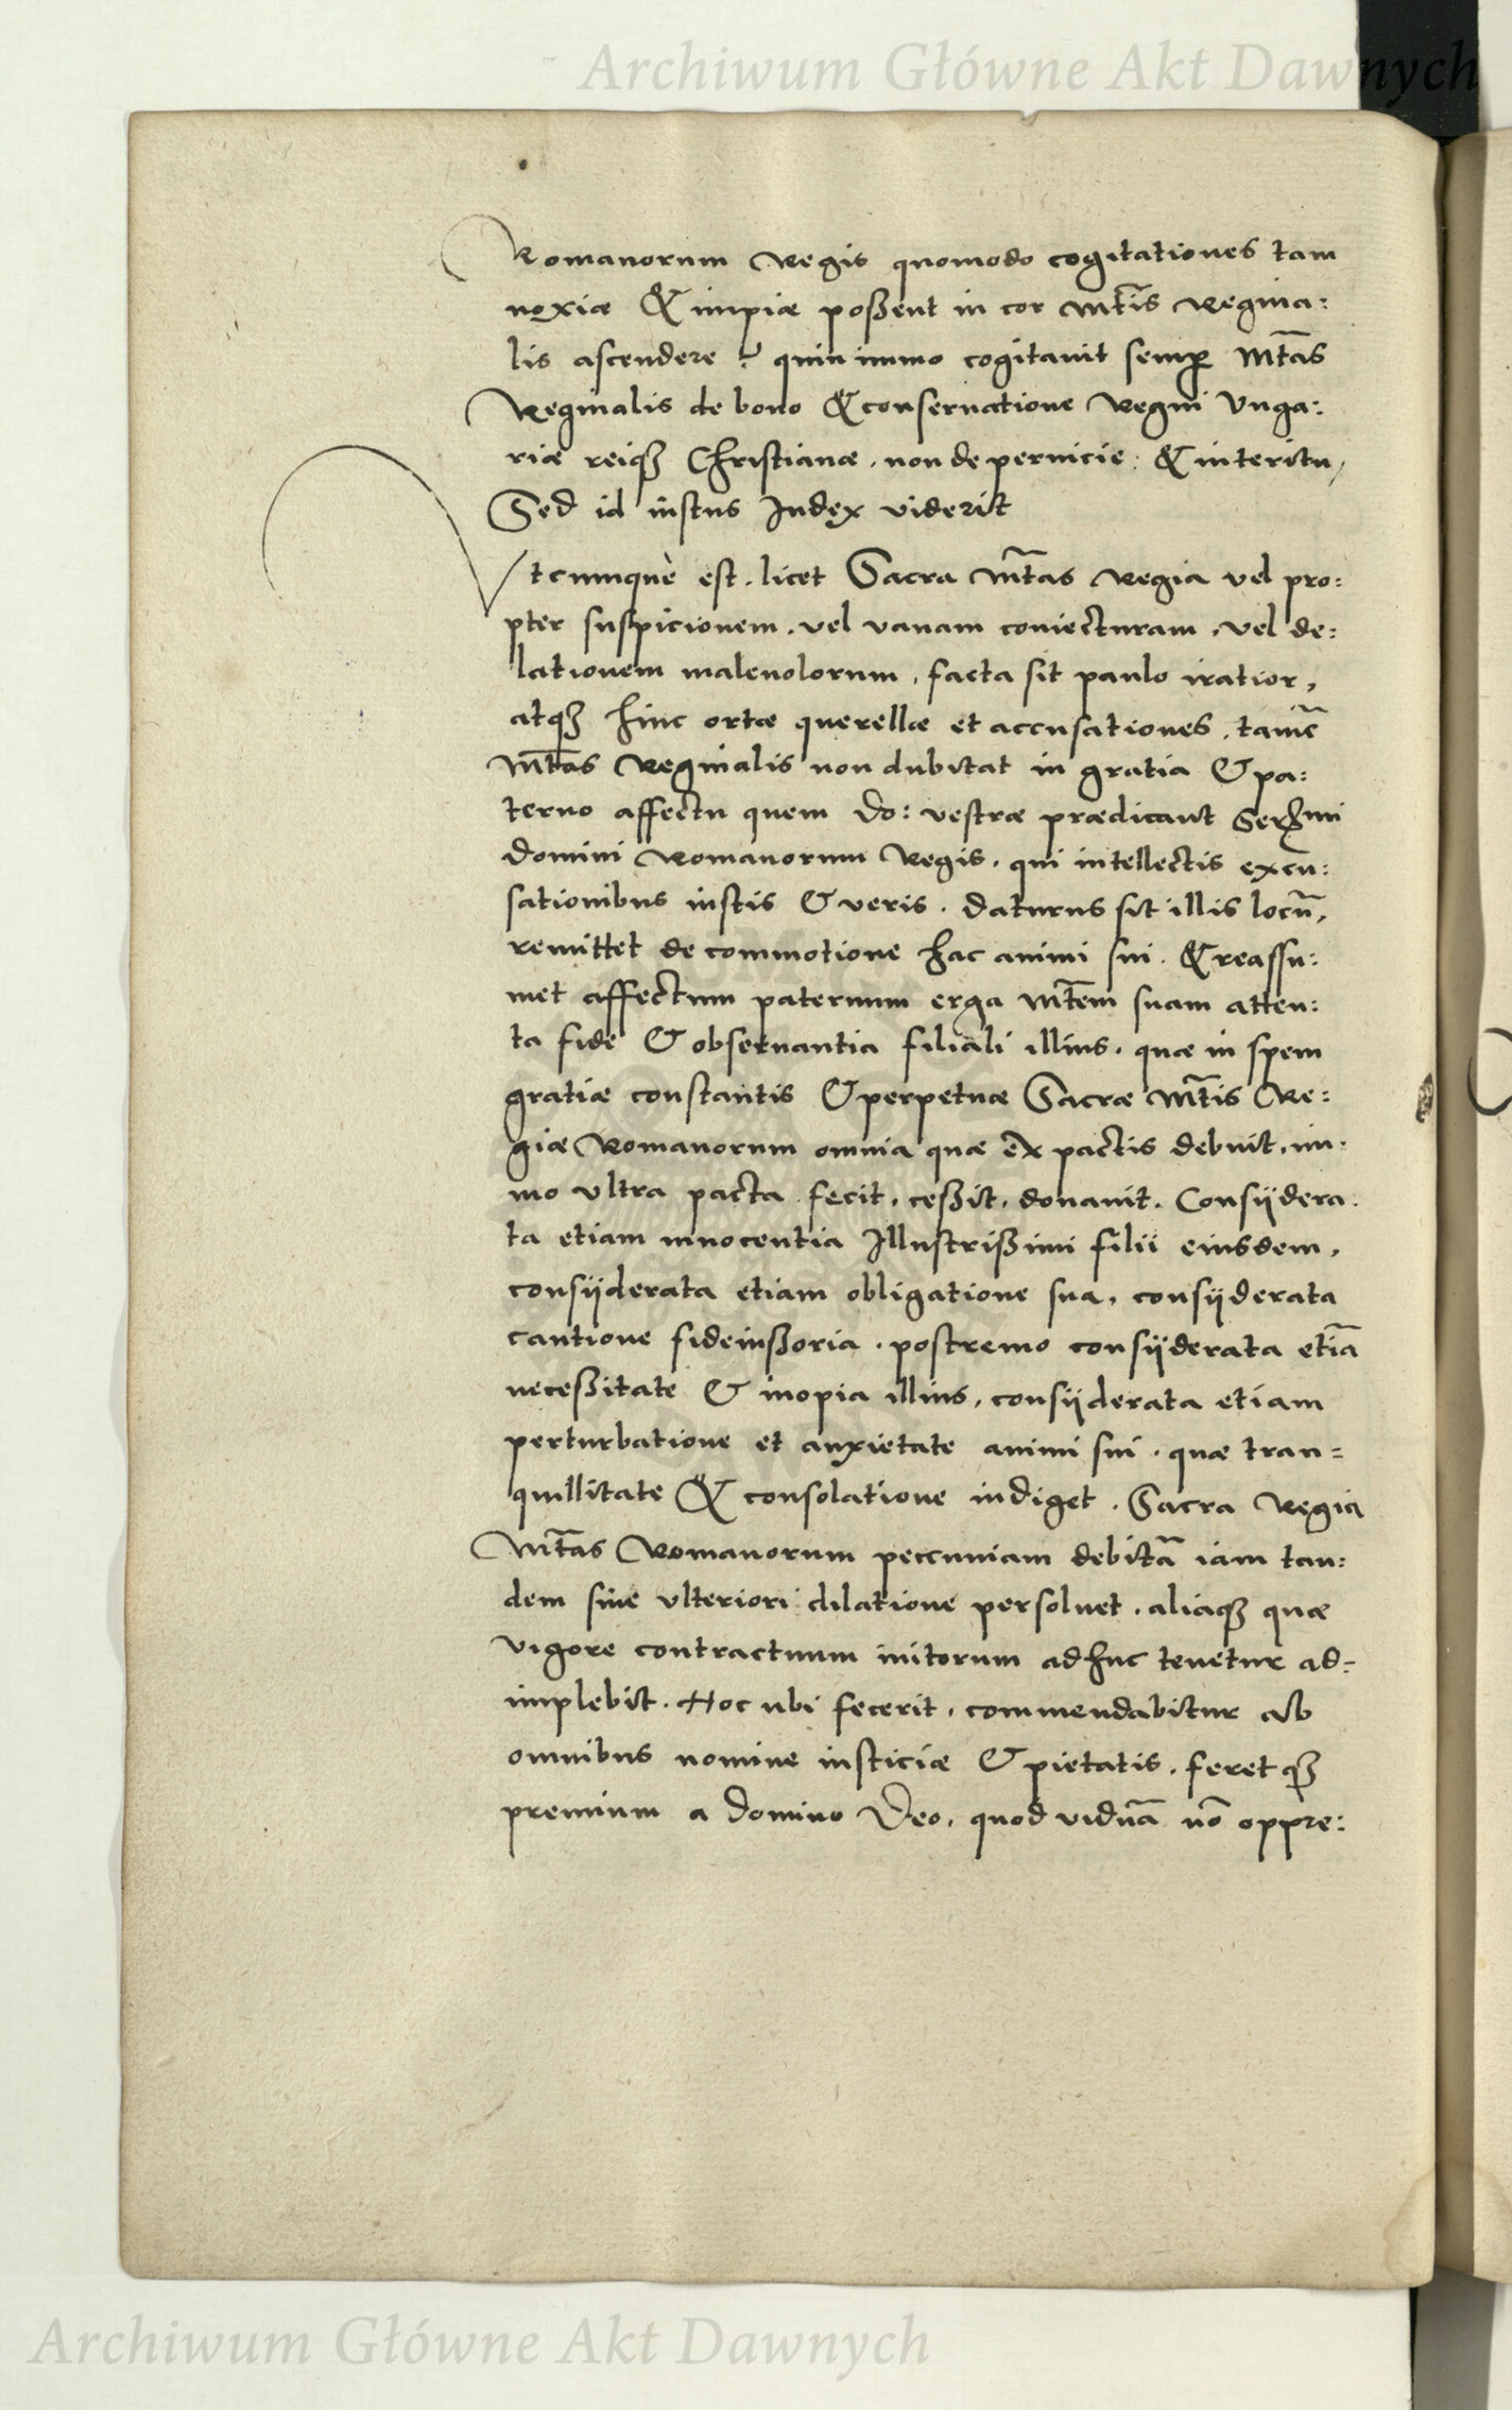 Archiwum Główne Akt Dawnych
Romanorum Regis quomodo cogitationes tam
noxiæ & impiæ poßent in cor Mt̃is Regina:
lis ascendere? quin immo cogitauit semꝑ Mt̃as
Reginalis de bono & conseruatione Regni Vnga:
riæ reiqꝫ Christianæ. non de pernicie: & interitu,
Sed id iustus Iudex viderit
Vtcumquè est. licet Sacra Mt̃as Regia vel pro:
pter suspicionem. vel vanam coniecturam. vel de:
lationem maleuolorum, facta sit paulo iratior,
atqꝫ hinc ortæ querellæ et accusationes. tamẽ
Mt̃as Reginalis non dubitat in gratia & pa:
terno affectu quem Do: vestræ prædicant Serꝫmi
domini Romanorum Regis. qui intellectis excu:
sationibus iustis & veris. daturus sit illis locũ,
remittet de commotione hac animi sui. & reassu:
met affectum paternum erga Mt̃em suam atten:
ta fide & obseruantia filiali illius. quæ in spem
gratiæ constantis & perpetuæ Sacræ Mt̃is Re:
giæ Romanorum omnia quæ ex pactis debuit, im:
mo vltra pacta fecit, ceßit, donauit. Consijdera:
ta etiam innocentia Illustrißimi filii eiusdem,
consijderata etiam obligatione sua, consijderata
cautione fideiußoria. postremo consijderata etiã
neceßitate & inopia illius, consijderata etiam
perturbatione et anxietate animi sui. quæ tran=
quillitate & consolatione indiget. Sacra Regia
Mt̃as Romanorum peccuniam debitã iam tan:
dem sine vlteriori dilatione persoluet. aliaqꝫ quæ
vigore contractuum initorum adhuc tenetur ad=
implebit. Hoc ubi fecerit, commendabitur ab
omnibus nomine iusticiæ & pietatis. feretqꝫ
premium a domino Deo, quod viduã nõ oppre:
Archiwum Główne Akt Dawnych